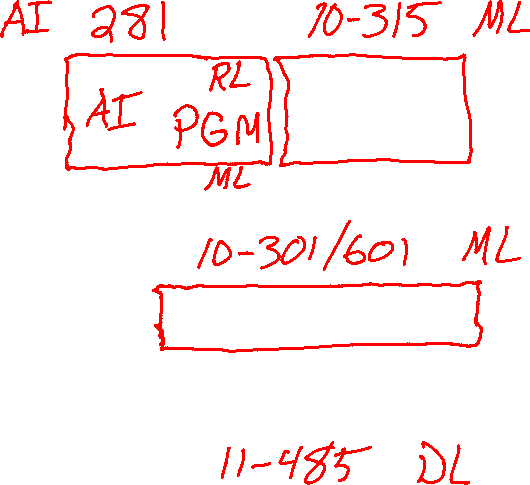 AI 281 10-315 ML
RL
AI PGM
ML
10-301/601 ML
11-485 DL